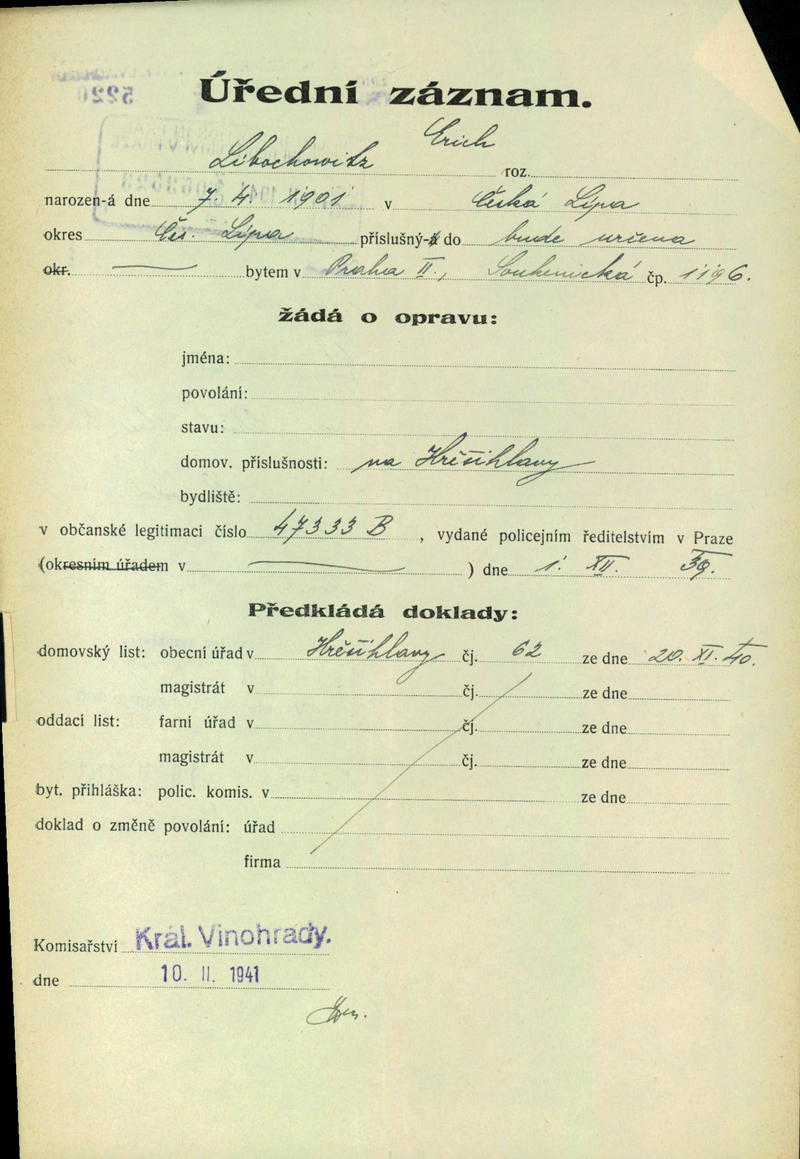 Úřední záznam.
Libochowitz Erich roz.
narozen-á dne 7. 4. 1901 v Česká Lípa
okres Čes. Lípa příslušný-á do bude určena
okr. bytem v Praha II., Soukenická čp. 1196.
žádá o opravu:
jména:
povolání:
stavu:
domov. příslušnosti: na Hřešihlavy
bydliště:
v občanské legitimaci číslo 47333 B , vydané policejním ředitelstvím v Praze
(okresním úřadem v ) dne 1. XII. 39.
Předkládá doklady:
domovský list: obecní úřad v Hřešihlavy čj. 62 ze dne 20. XI. 40.
magistrát v čj. ze dne
oddací list: farní úřad v čj. ze dne
magistrát v čj. ze dne
byt. přihláška: polic. komis. v ze dne
doklad o změně povolání: úřad
firma
Komisařství Král. Vinohrady.
dne 10. II. 1941